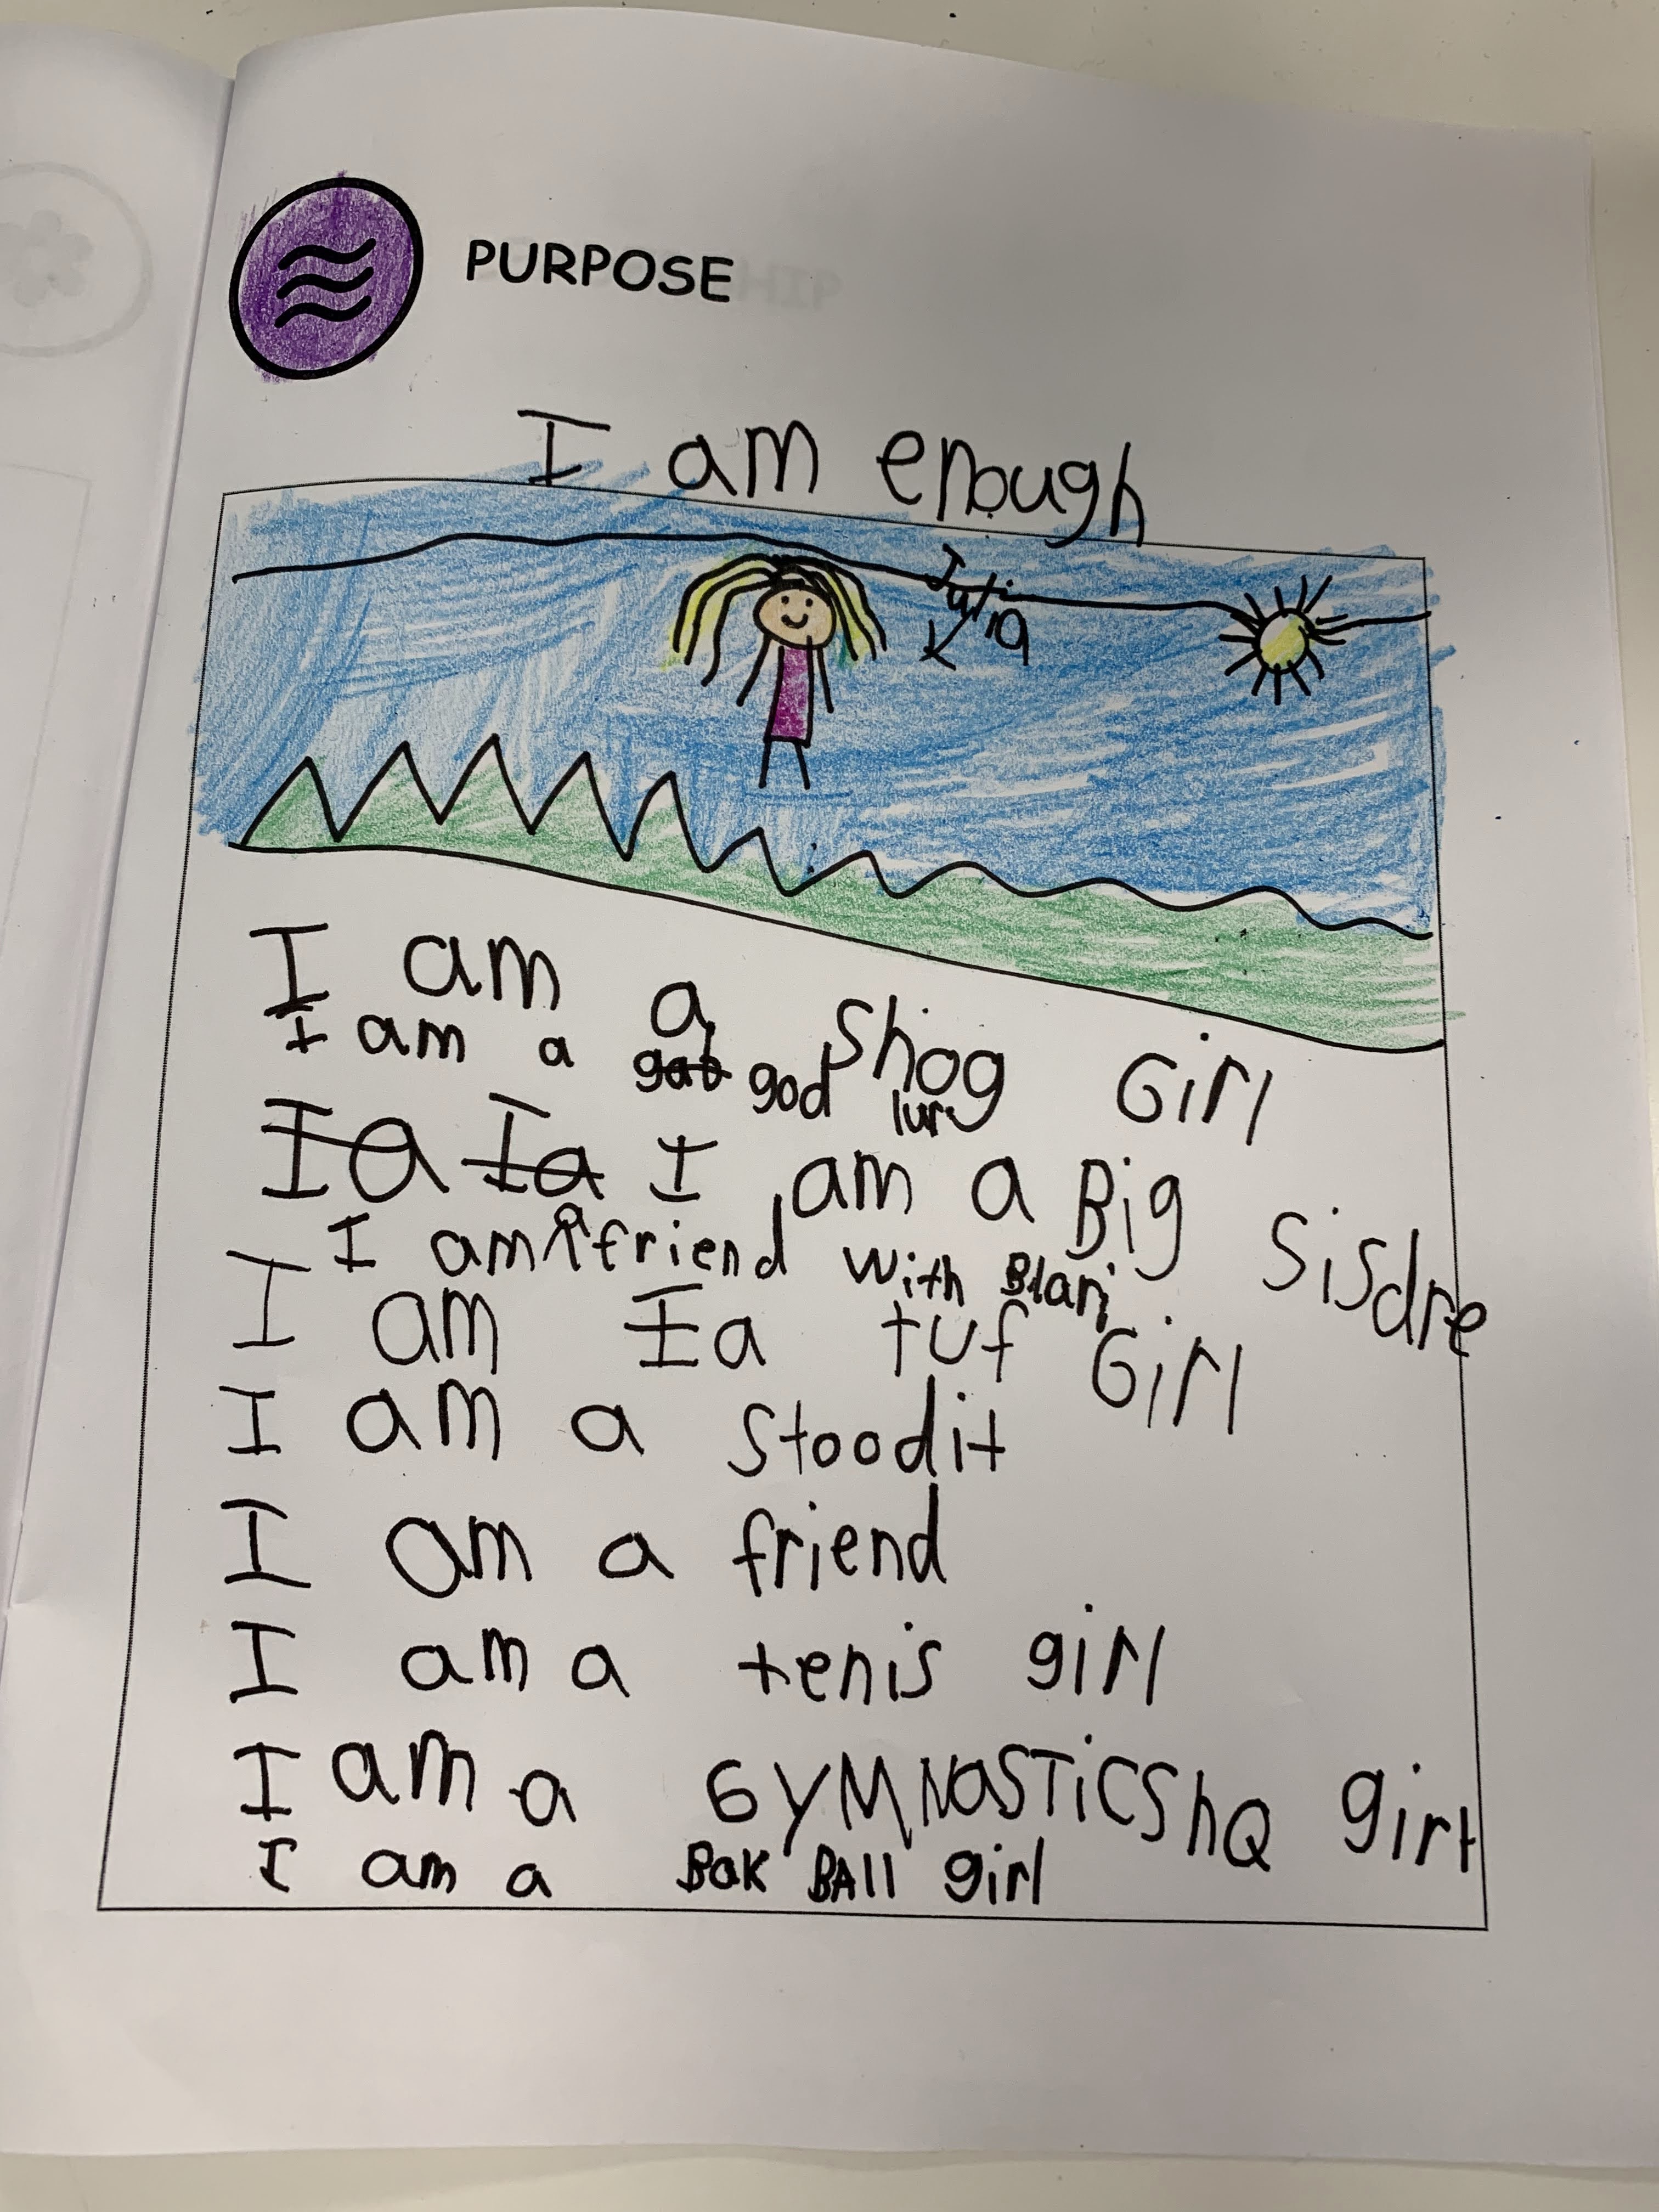 PURPOSE
I am enough
Julia
I am a Shog Girl
I am a god lurn
I am a Big Sisdre
I am A friend with Blari
I am a tuf Girl
I am a Stoodit
I am a friend
I am a tenis girl
I am a GYMNaSTiCShQ girl
I am a BaK BAll girl